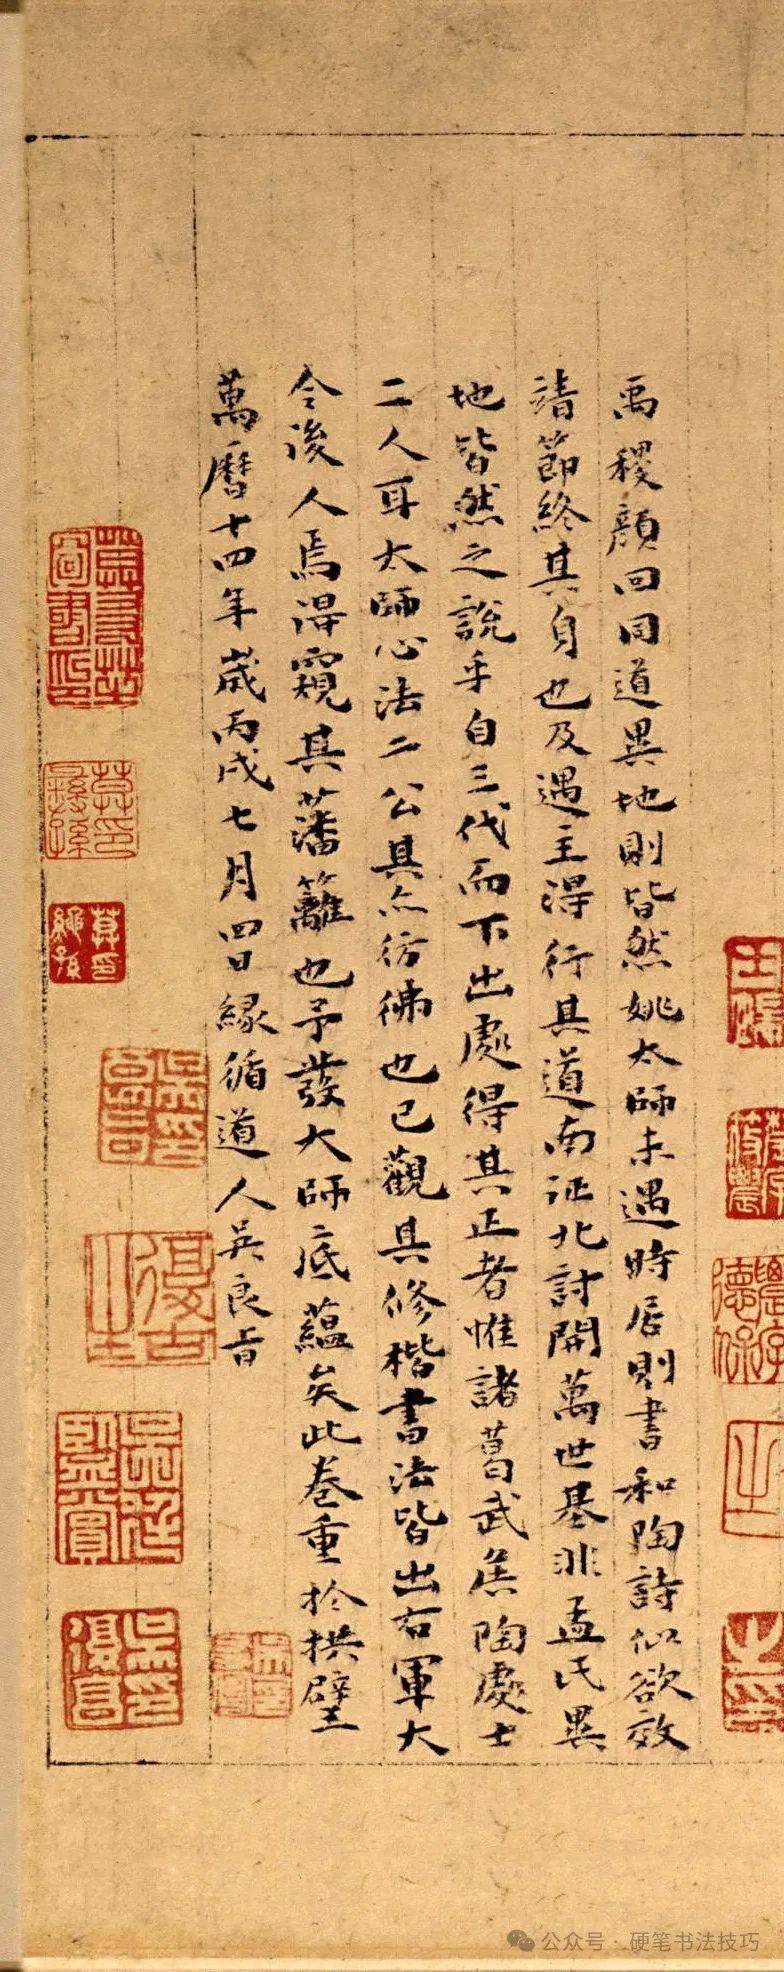 禹稷顏回同道異地則皆然姚太師未遇時居則書和陶詩似欲效
靖節終其身也及遇主得行其道南征北討開萬世基非孟氏異
地皆然之說乎自三代而下出處得其正者惟諸葛武侯陶處士
二人耳太師心法二公其亦彷彿也已觀其修楷書法皆出右軍大
令後人焉得窺其藩籬也予發大師底蘊矣此卷重於拱璧
萬曆十四年歲丙戌七月四日緣循道人吳良旨
吳廷
臨賞
復古
公众号 · 硬笔书法技巧